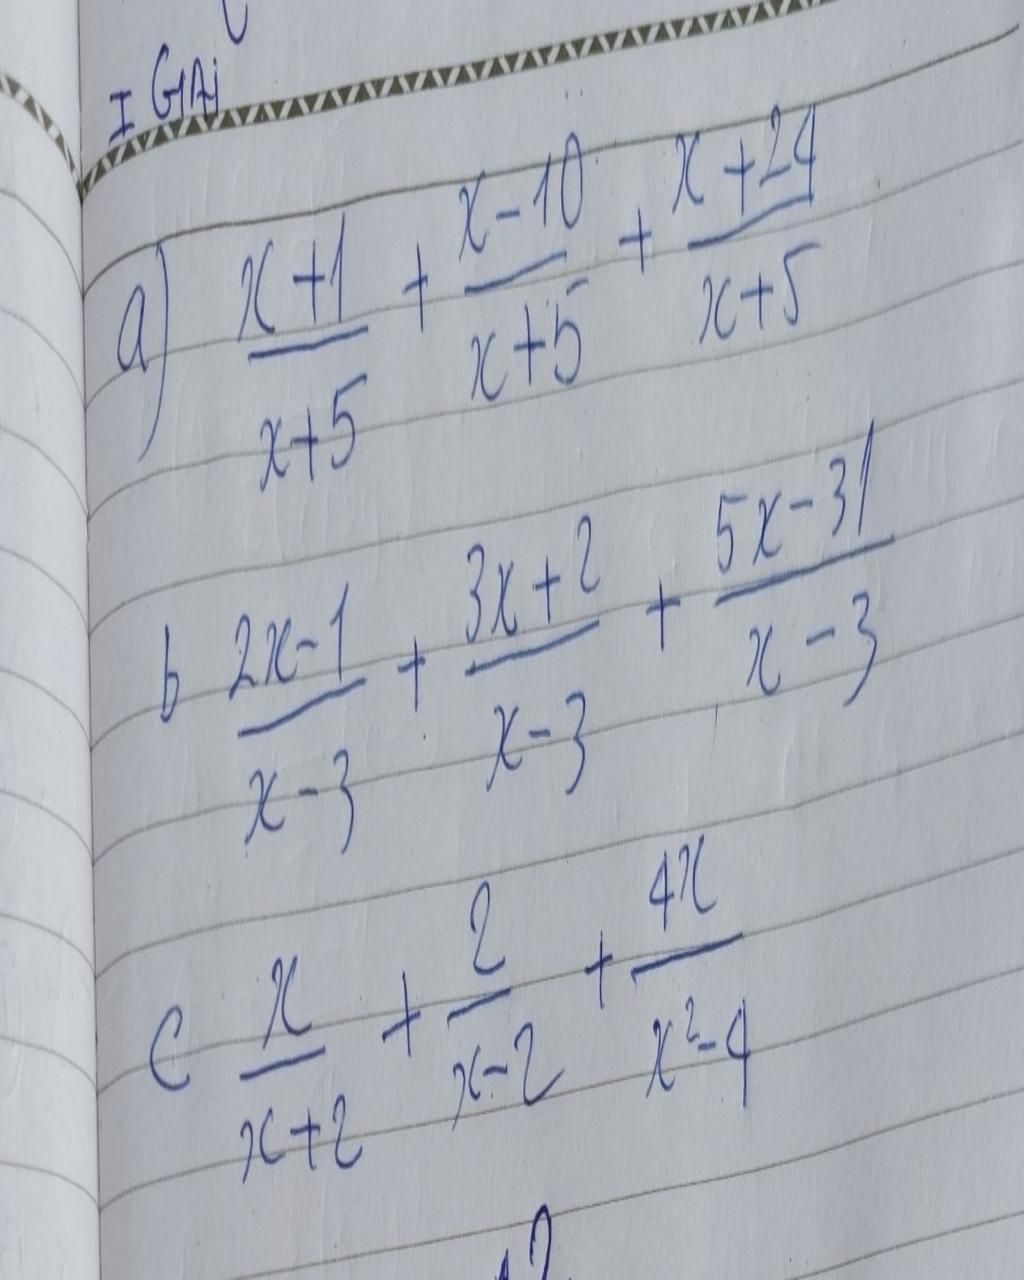 I GIAi
a) x+1/x+5 + x-10/x+5 + x+24/x+5
b 2x-1/x-3 + 3x+2/x-3 + 5x-31/x-3
c x/x+2 + 2/x-2 + 4x/x²-4